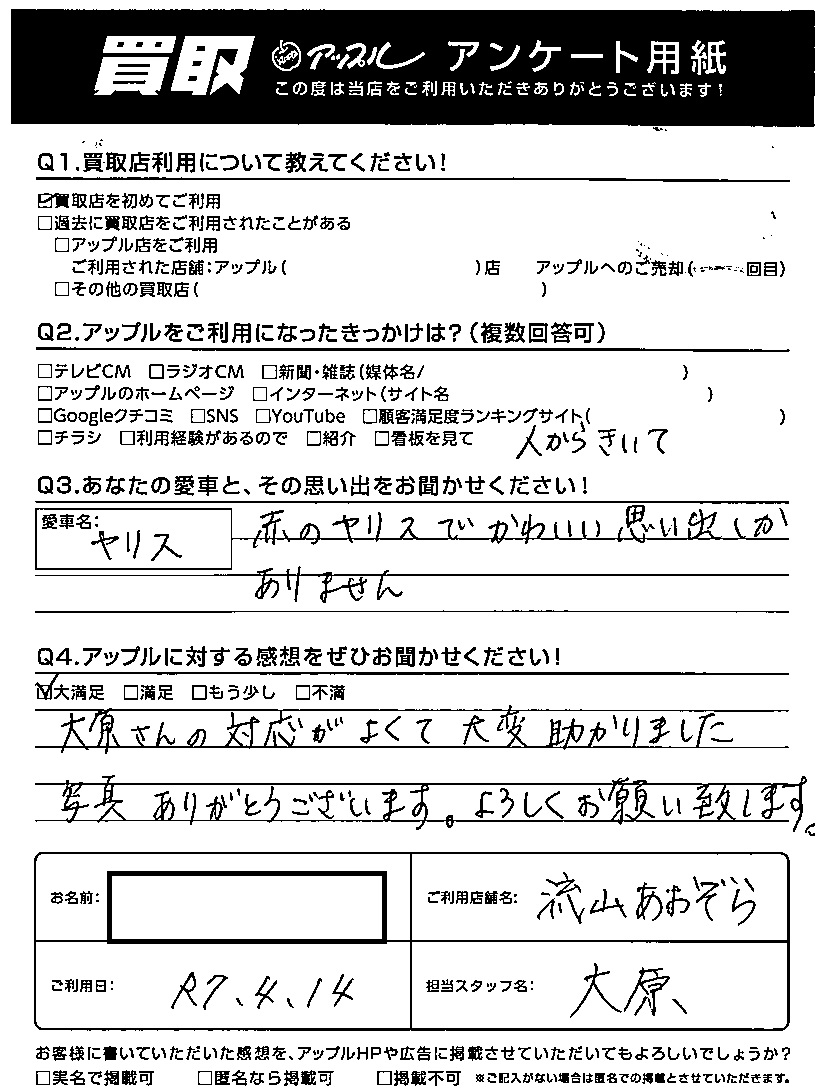 買取 アップル アンケート用紙
この度は当店をご利用いただきありがとうございます!
Q1.買取店利用について教えてください!
☑買取店を初めてご利用
□過去に買取店をご利用されたことがある
□アップル店をご利用
ご利用された店舗:アップル( )店 アップルへのご売却( 回目)
□その他の買取店( )
Q2.アップルをご利用になったきっかけは?(複数回答可)
□テレビCM □ラジオCM □新聞・雑誌(媒体名/ )
□アップルのホームページ □インターネット(サイト名 )
□Googleクチコミ □SNS □YouTube □顧客満足度ランキングサイト( )
□チラシ □利用経験があるので □紹介 □看板を見て 人からきいて
Q3.あなたの愛車と、その思い出をお聞かせください!
愛車名: ヤリス
赤のヤリスでかわいい思い出しか
ありません
Q4.アップルに対する感想をぜひお聞かせください!
☑大満足 □満足 □もう少し □不満
大原さんの対応がよくて大変助かりました
写真ありがとうございます。よろしくお願い致します。
お名前: ご利用店舗名: 流山あおぞら
ご利用日: R7.4.14 担当スタッフ名: 大原
お客様に書いていただいた感想を、アップルHPや広告に掲載させていただいてもよろしいでしょうか?
□実名で掲載可 □匿名なら掲載可 □掲載不可 ※ご記入がない場合は匿名での掲載とさせていただきます。